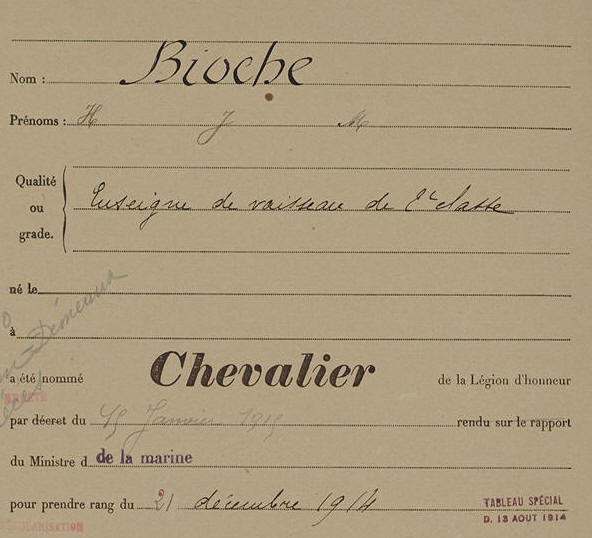 Nom : Bioche
Prénoms : H J M
Qualité
ou
grade.
Enseigne de vaisseau de 2e classe
né le
à
a été nommé Chevalier de la Légion d'honneur
par décret du 15 Janvier 1915 rendu sur le rapport
du Ministre d de la marine
pour prendre rang du 21 décembre 1914
TABLEAU SPÉCIAL
D. 13 AOUT 1914